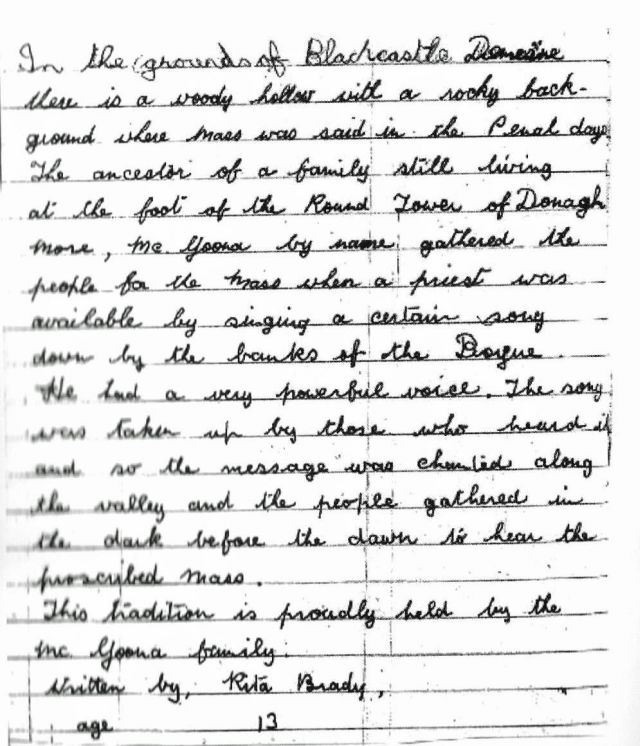 In the grounds of Blackcastle Demesne
there is a woody hollow with a rocky back-
ground where mass was said in the Penal days
The ancestor of a family still living
at the foot of the Round Tower of Donagh
more, Mc Goona by name gathered the
people for the mass when a priest was
available by singing a certain song
down by the banks of the Boyne.
He had a very powerful voice. The song
was taken up by those who heard it
and so the message was chanted along
the valley and the people gathered in
the dark before the dawn to hear the
proscribed mass.
This tradition is proudly held by the
Mc Goona family.
Written by, Rita Brady,
age 13